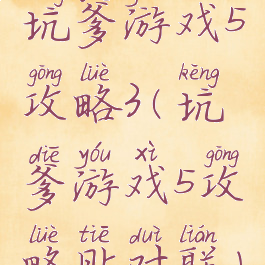 坑爹游戏5
gōng lüè kēng
攻略3(坑
diē yóu xì gōng
爹游戏5攻
lüè tiē duì lián
略贴对联)